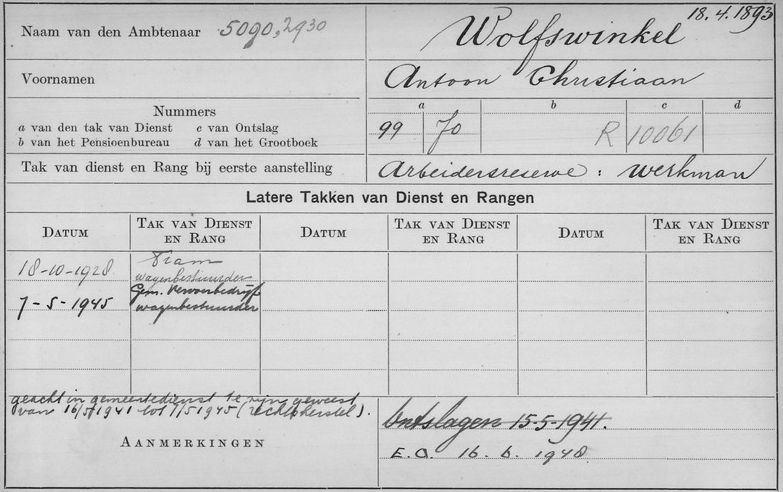 18.4.1893
Naam van den Ambtenaar 5090,2930 Wolfswinkel
Voornamen Antoon Christiaan
Nummers a b c d
a van den tak van Dienst c van Ontslag
b van het Pensioenbureau d van het Grootboek
99 Jo R 10061
Tak van dienst en Rang bij eerste aanstelling Arbeidersreserve : werkman
Latere Takken van Dienst en Rangen
DATUM TAK VAN DIENST EN RANG DATUM TAK VAN DIENST EN RANG DATUM TAK VAN DIENST EN RANG
18-10-1928 Tram
wagenbestuurder
Gem. Vervoerbedrijf
7-5-1945 wagenbestuurder
geacht in gemeentedienst te zijn geweest
van 16/5 1941 tot 7/5 1945 (rechtsherstel).
Ontslagen 15-5-1941.
AANMERKINGEN
E.O. 16.6.1948